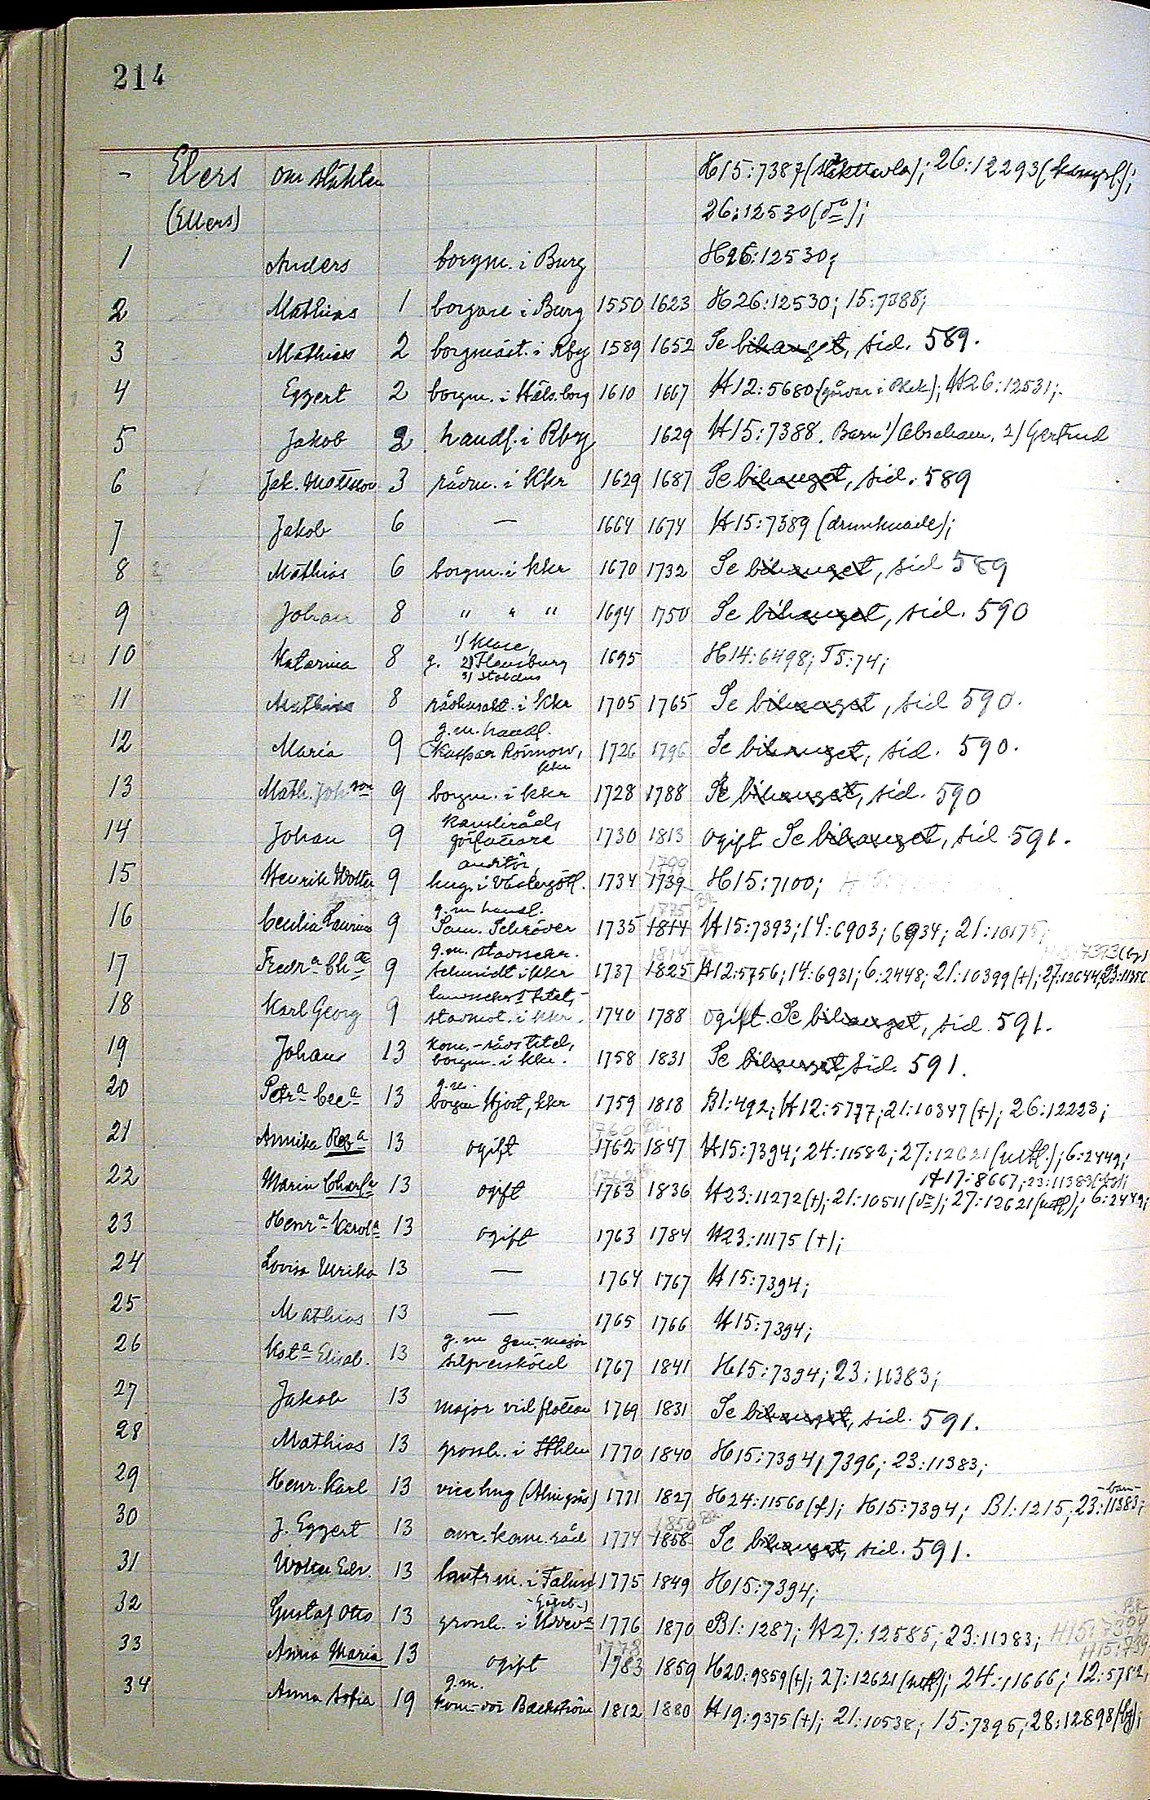 214
- Elers om släkten H15:7387 (släkttavla); 26:12293
(Ellers) 26:12530 (do);
1 Anders borgm. i Burg H26:12530;
2 Mathias 1 borgare i Burg 1550 1623 H26:12530; 15:7388;
3 Mathias 2 borgmäst. i Rby 1589 1652 Se bihanget, sid. 589.
4 Eggert 2 borgm. i Häls.borg 1610 1667 H12:5680 H26:12531;
5 Jakob 2 handl. i Rby 1629 H15:7388. Barn 1) Abraham, 2) Gertrud
6 Jak. Mattsson 3 rådm. i Kkr 1629 1687 Se bihanget, sid. 589
7 Jakob 6 — 1664 1674 H15:7389 (drunknade);
8 Mathias 6 borgm. i Kkr 1670 1732 Se bihanget, sid 589
9 Johan 8 " " " 1694 1750 Se bihanget, sid. 590
10 Katarina 8 g. 1) Klase, 2) Flensburg 3) Stobæus 1695 H14:6498; T5:74;
11 Mathias 8 rådhusakt. i Kkr 1705 1765 Se bihanget, sid 590.
12 Maria 9 g.m. handl. Kaspar Römnow, Kkr 1726 1796 Se bihanget, sid. 590.
13 Math. Johson 9 borgm. i Kkr 1728 1788 Se bihanget, sid. 590
14 Johan 9 kansliråd, författare 1730 1813 ogift Se bihanget, sid 591.
15 Henrik Wolter 9 auditör, hug. i Västergötl. 1734 1739 H15:7100;
16 Cecilia Laurina 9 g.m. handl. Sam. Schröver 1735 1814 1875 H15:7393; 14:6903; 6934; 21:10175;
17 Fredra Cha 9 g.m. stadssekr. Schmidt i Kkr 1737 1825 1814 H12:5756; 14:6931; 6:2448; 21:10399 (+); 27:12644;
18 Karl Georg 9 landssekr:s titel, stadsnot. i Kkr. 1740 1788 ogift. Se bihanget, sid. 591.
19 Johan 13 kom.-råds titel, borgm. i Kkr. 1758 1831 Se bihanget, sid. 591.
20 Petra Ceca 13 g.m. borgm Hjort, Kkr 1759 1818 B1:492; H12:5777; 21:10347 (+); 26:12223;
21 Annika Reba 13 ogift 1760 1762 1847 H15:7394; 24:11582; 27:12621 6:2449;
H17:8667; 23:11383
22 Maria Charla 13 ogift 1762 1763 1836 H23:11272 (+); 21:10511 (do); 27:12621 6:2449;
23 Henra Karola 13 ogift 1763 1784 H23:11175 (+);
24 Lovisa Ulrika 13 — 1764 1767 H15:7394;
25 Mathias 13 — 1765 1766 H15:7394;
26 Kata Elisab. 13 g.m gen-major Silfversköld 1767 1841 H15:7394; 23:11383;
27 Jakob 13 major vid flottan 1769 1831 Se bihanget, sid. 591.
28 Mathias 13 grossh. i Sthlm 1770 1840 H15:7394; 7396; 23:11383;
29 Henr. Karl 13 vice hug (Alingsås) 1771 1827 H24:11560 H15:7394; B1:1215; 23:11383;
30 J. Eggert 13 1774 1858 1850 Se bihanget, sid. 591.
31 Wolter Edv. 13 lantm. i Falun 1775 1849 H15:7394;
32 Gustaf Otto 13 grossh. i 1776 1870 B1:1287; H27:12585; 23:11383; H15:7394
33 Anna Maria 13 ogift 1778 1783 1859 H20:9859 (+); 27:12621 24:11666; 12:5782;
34 Anna Sofia 19 g.m. Backström 1812 1880 H19:9375 (+); 21:10538; 15:7395; 28:12898